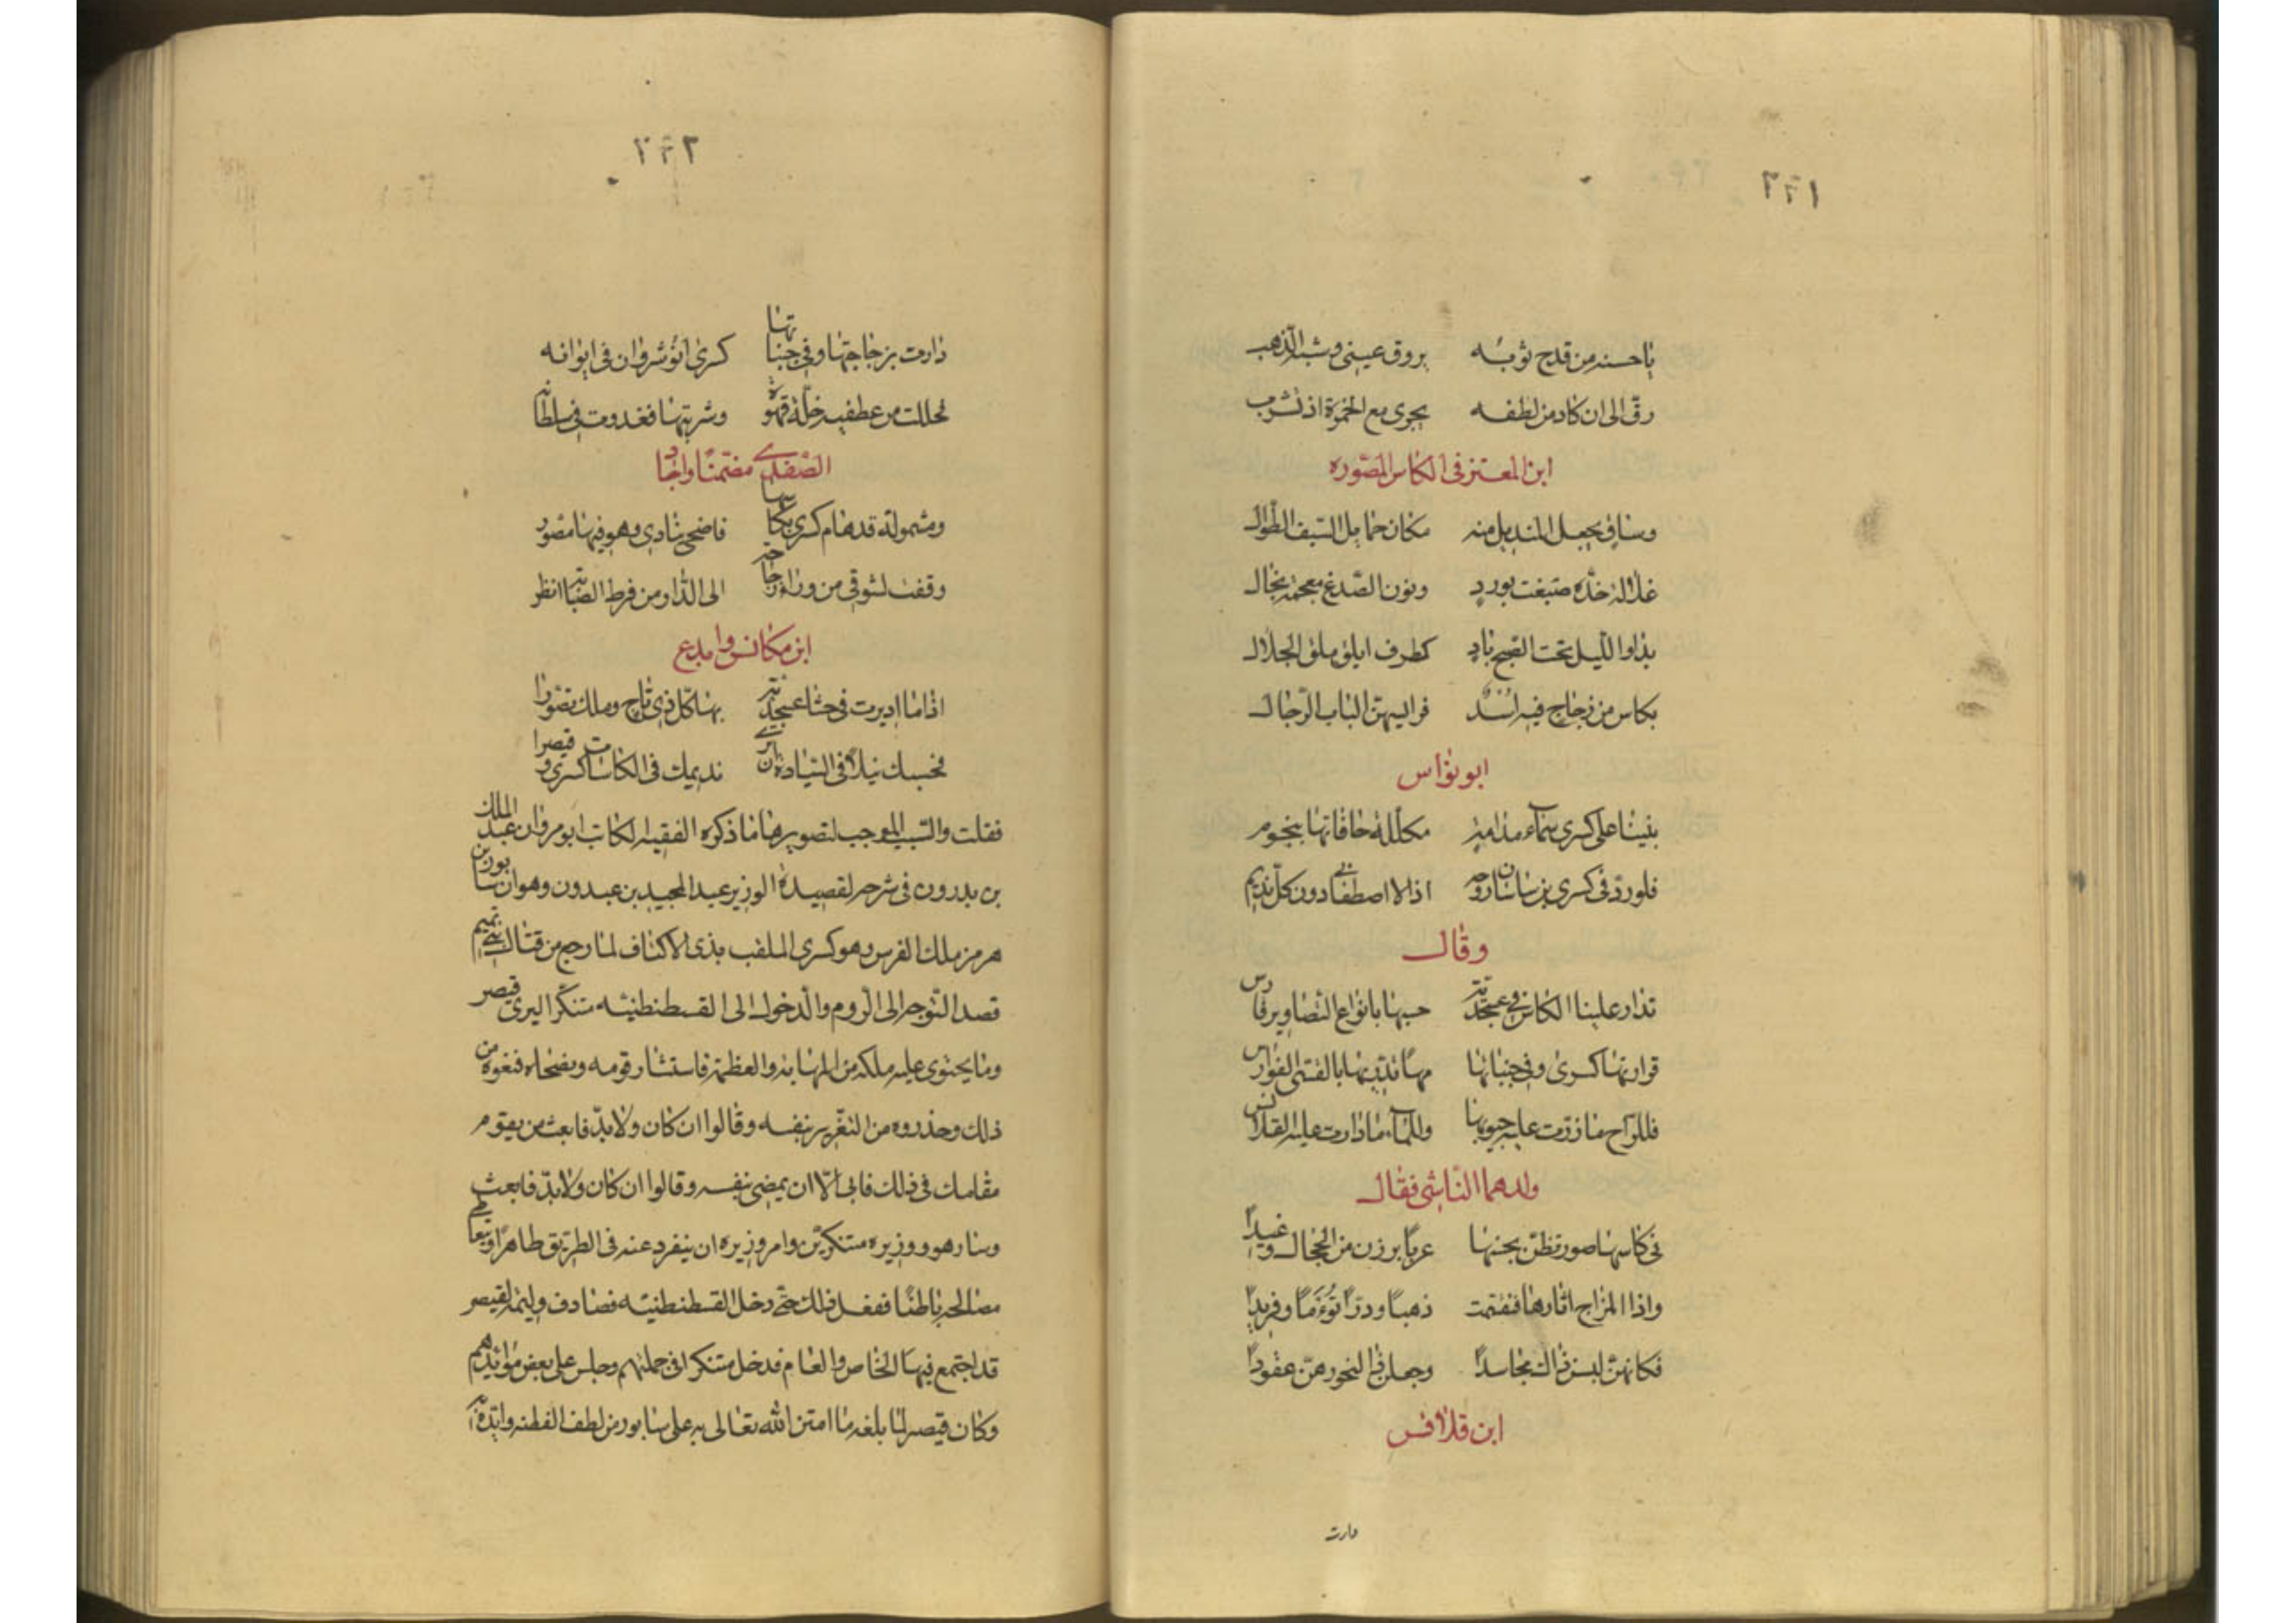 ٢٢١
يا حسنه من قدح ثوبه يروق عيني وشبه الذهب
رق الى ان كاد من لطفه يجرى مع الخمرة اذ تشرب
ابن المعتز فى الكاس المصوره
وساق يجعل المنديل منه مكان حمايل السيف الطوال
غلالة خده صبغت بورد ونون الصدغ معجمة بخال
بدا والليل تحت الصبح باد كطرف ابلق ملقى الجلال
بكاس من زجاج فيه اسد فرايسهن الباب الرجال
ابو نواس
بنينا على كسرى سماء مدامة مكللة حافاتها بنجوم
فلو رد فى كسرى بن ساسان روحه اذا لاصطفانى دون كل نديم
وقال
تدار علينا الكاس فى عسجدية حبتها بانواع التصاوير فارس
قرارتها كسرى وفى جنباتها مها تدريها بالقسى الفوارس
فللراح ما زرت عليه جيوبها وللماء ما دارت عليه القلانس
ولدهما الناشى فقال
فى كاسها صور تظن بحسنها عربا برزن من الحجال وغيدا
واذا المزاج اثارها فتقسمت ذهبا ودرا توءما وفريدا
فكانهن لبسن ذاك مجاسدا وجعلن ذا لنحورهن عقودا
ابن قلاقس
دارت
٢٢٢
دارت بزجاجتها وفى جنباتها كسرى انوشروان فى ايوانه
فحللت من عطفيه حلة قهوة وشربتها فغدوت فى سلطانه
الصفدى مضمنا واجاد
ومشمولة قد هام كسرى بكاسها فاضحى ينادى وهو فيها مصور
وقفت لشوقى من وراء زجاجة الى الدار من فرط الصبابة انظر
ابن مكانس وابدع
اذا ما اديرت فى حشا عسجدية بها كل ذى تاج وملك تصورا
فحسبك نيلا فى السيادة ان ترى نديمك فى الكاسات كسرى وقيصرا
فقلت والسبب الموجب لتصويرها ما ذكره الفقيه الكاتب ابو مروان عبد الملك
بن بدرون فى شرحه لقصيدة الوزير عبد المجيد بن عبدون وهو ان سابور بن
هرمز ملك الفرس وهو كسرى الملقب بذى الاكتاف لما رجع من قتال بنى تميم
قصد التوجه الى الروم والدخول الى القسطنطنيه متنكرا ليرى قيصر
وما يحتوى عليه ملكه من المهابة والعظمة فاستشار قومه ونصحاه فنعوه من
ذلك وحذروه من التغرير بنفسه وقالوا ان كان ولا بد فابعث من يقوم
مقامك فى ذلك فابى الا ان يمضى بنفسه وقالوا ان كان ولا بد فابعث
وسار هو ووزيره متنكرين وامر وزيره ان ينفرد عنه فى الطريق ظاهرا
مصالحه باطنا ففعل ذلك حتى دخل القسطنطنيه فصادف وليمة لقيصر
قد اجتمع فيها الخاص والعام فدخل متنكرا فى جملتهم وجلس على بعض موائدهم
وكان قيصر لما بلغه ما امتن الله تعالى به على سابور من لطف الفطنه